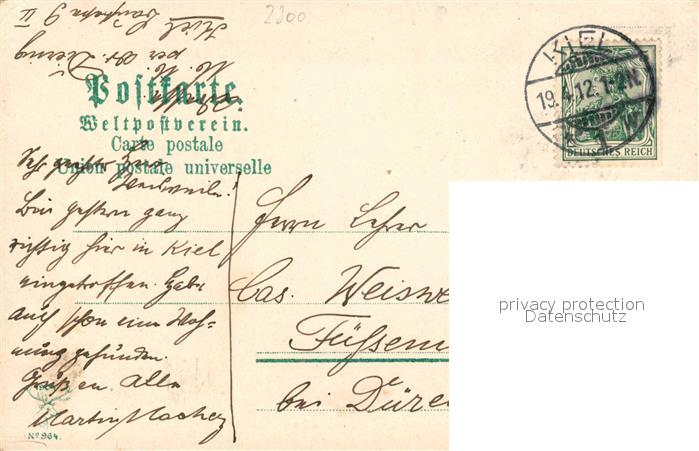 2200
Kiel
per Dr.
Postkarte.
Weltpostverein.
Carte postale
Union postale universelle
KIEL
19.4.12.1-2N.
DEUTSCHES REICH
Sehr geehrter Herr
Weisweiler!
Bin gestern ganz
richtig hier in Kiel
eingetroffen. Habe
auch schon eine Woh-
nung gefunden.
Gruß an Alle
Martin
Herrn Lehrer
Cas. Weiswe
Füssen
bei Düre
No 964.
privacy protection
Datenschutz